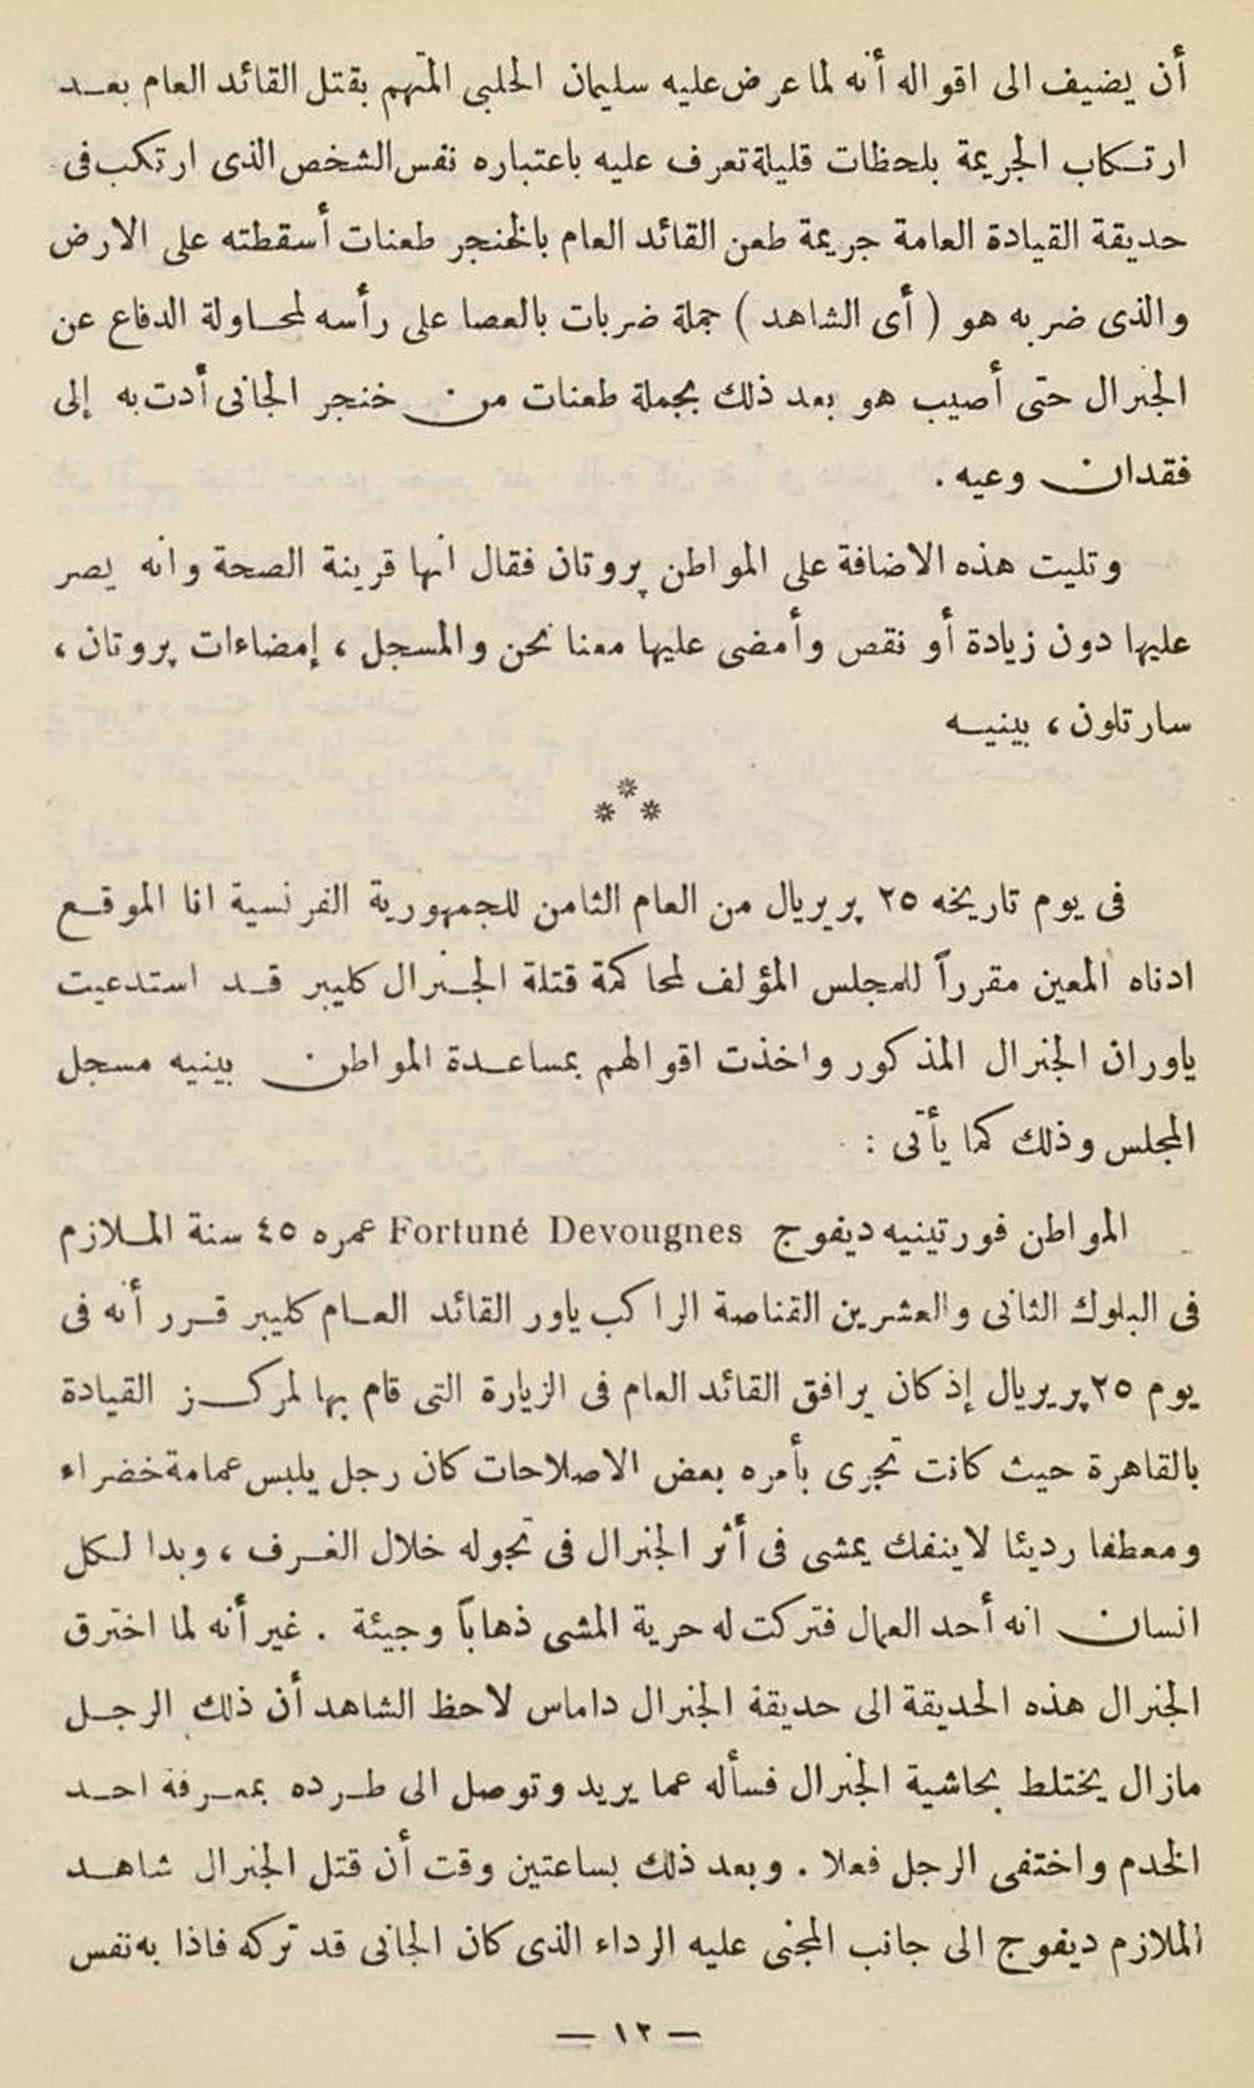 أن يضيف الى اقواله أنه لما عرض عليه سليمان الحلبى المتهم بقتل القائد العام بعد
ارتكاب الجريمة بلحظات قليلة تعرف عليه باعتباره نفس الشخص الذى ارتكب فى
حديقة القيادة العامة جريمة طعن القائد العام بالخنجر طعنات أسقطته على الارض
والذى ضربه هو ( أى الشاهد ) جملة ضربات بالعصا على رأسه لمحاولة الدفاع عن
الجنرال حتى أصيب هو بعد ذلك بجملة طعنات من خنجر الجانى أدت به إلى
فقدان وعيه .
وتليت هذه الاضافة على المواطن پروتان فقال انها قرينة الصحة وانه يصر
عليها دون زيادة أو نقص وأمضى عليها معنا نحن والمسجل ، إمضاءات پروتان ،
سارتلون ، بينيه
***
فى يوم تاريخه ٢٥ پريريال من العام الثامن للجمهورية الفرنسية انا الموقع
ادناه المعين مقرراً للمجلس المؤلف لمحاكمة قتلة الجنرال كليبر قد استدعيت
ياوران الجنرال المذكور واخذت اقوالهم بمساعدة المواطن بينيه مسجل
المجلس وذلك كما يأتى :
المواطن فورتينيه ديفوج Fortuné Devougnes عمره ٤٥ سنة الملازم
فى البلوك الثانى والعشرين القناصة الراكب ياور القائد العام كليبر قرر أنه فى
يوم ٢٥ پريريال إذ كان يرافق القائد العام فى الزيارة التى قام بها لمركز القيادة
بالقاهرة حيث كانت تجرى بأمره بعض الاصلاحات كان رجل يلبس عمامة خضراء
ومعطفا رديئا لا ينفك يمشى فى أثر الجنرال فى تجوله خلال الغرف ، وبدا لكل
انسان انه أحد العمال فتركت له حرية المشى ذهاباً وجيئة . غير أنه لما اخترق
الجنرال هذه الحديقة الى حديقة الجنرال داماس لاحظ الشاهد أن ذلك الرجل
مازال يختلط بحاشية الجنرال فسأله عما يريد وتوصل الى طرده بمعرفة احد
الخدم واختفى الرجل فعلا . وبعد ذلك بساعتين وقت أن قتل الجنرال شاهد
الملازم ديفوج الى جانب المجنى عليه الرداء الذى كان الجانى قد تركه فاذا به نفس
— ١٢ —